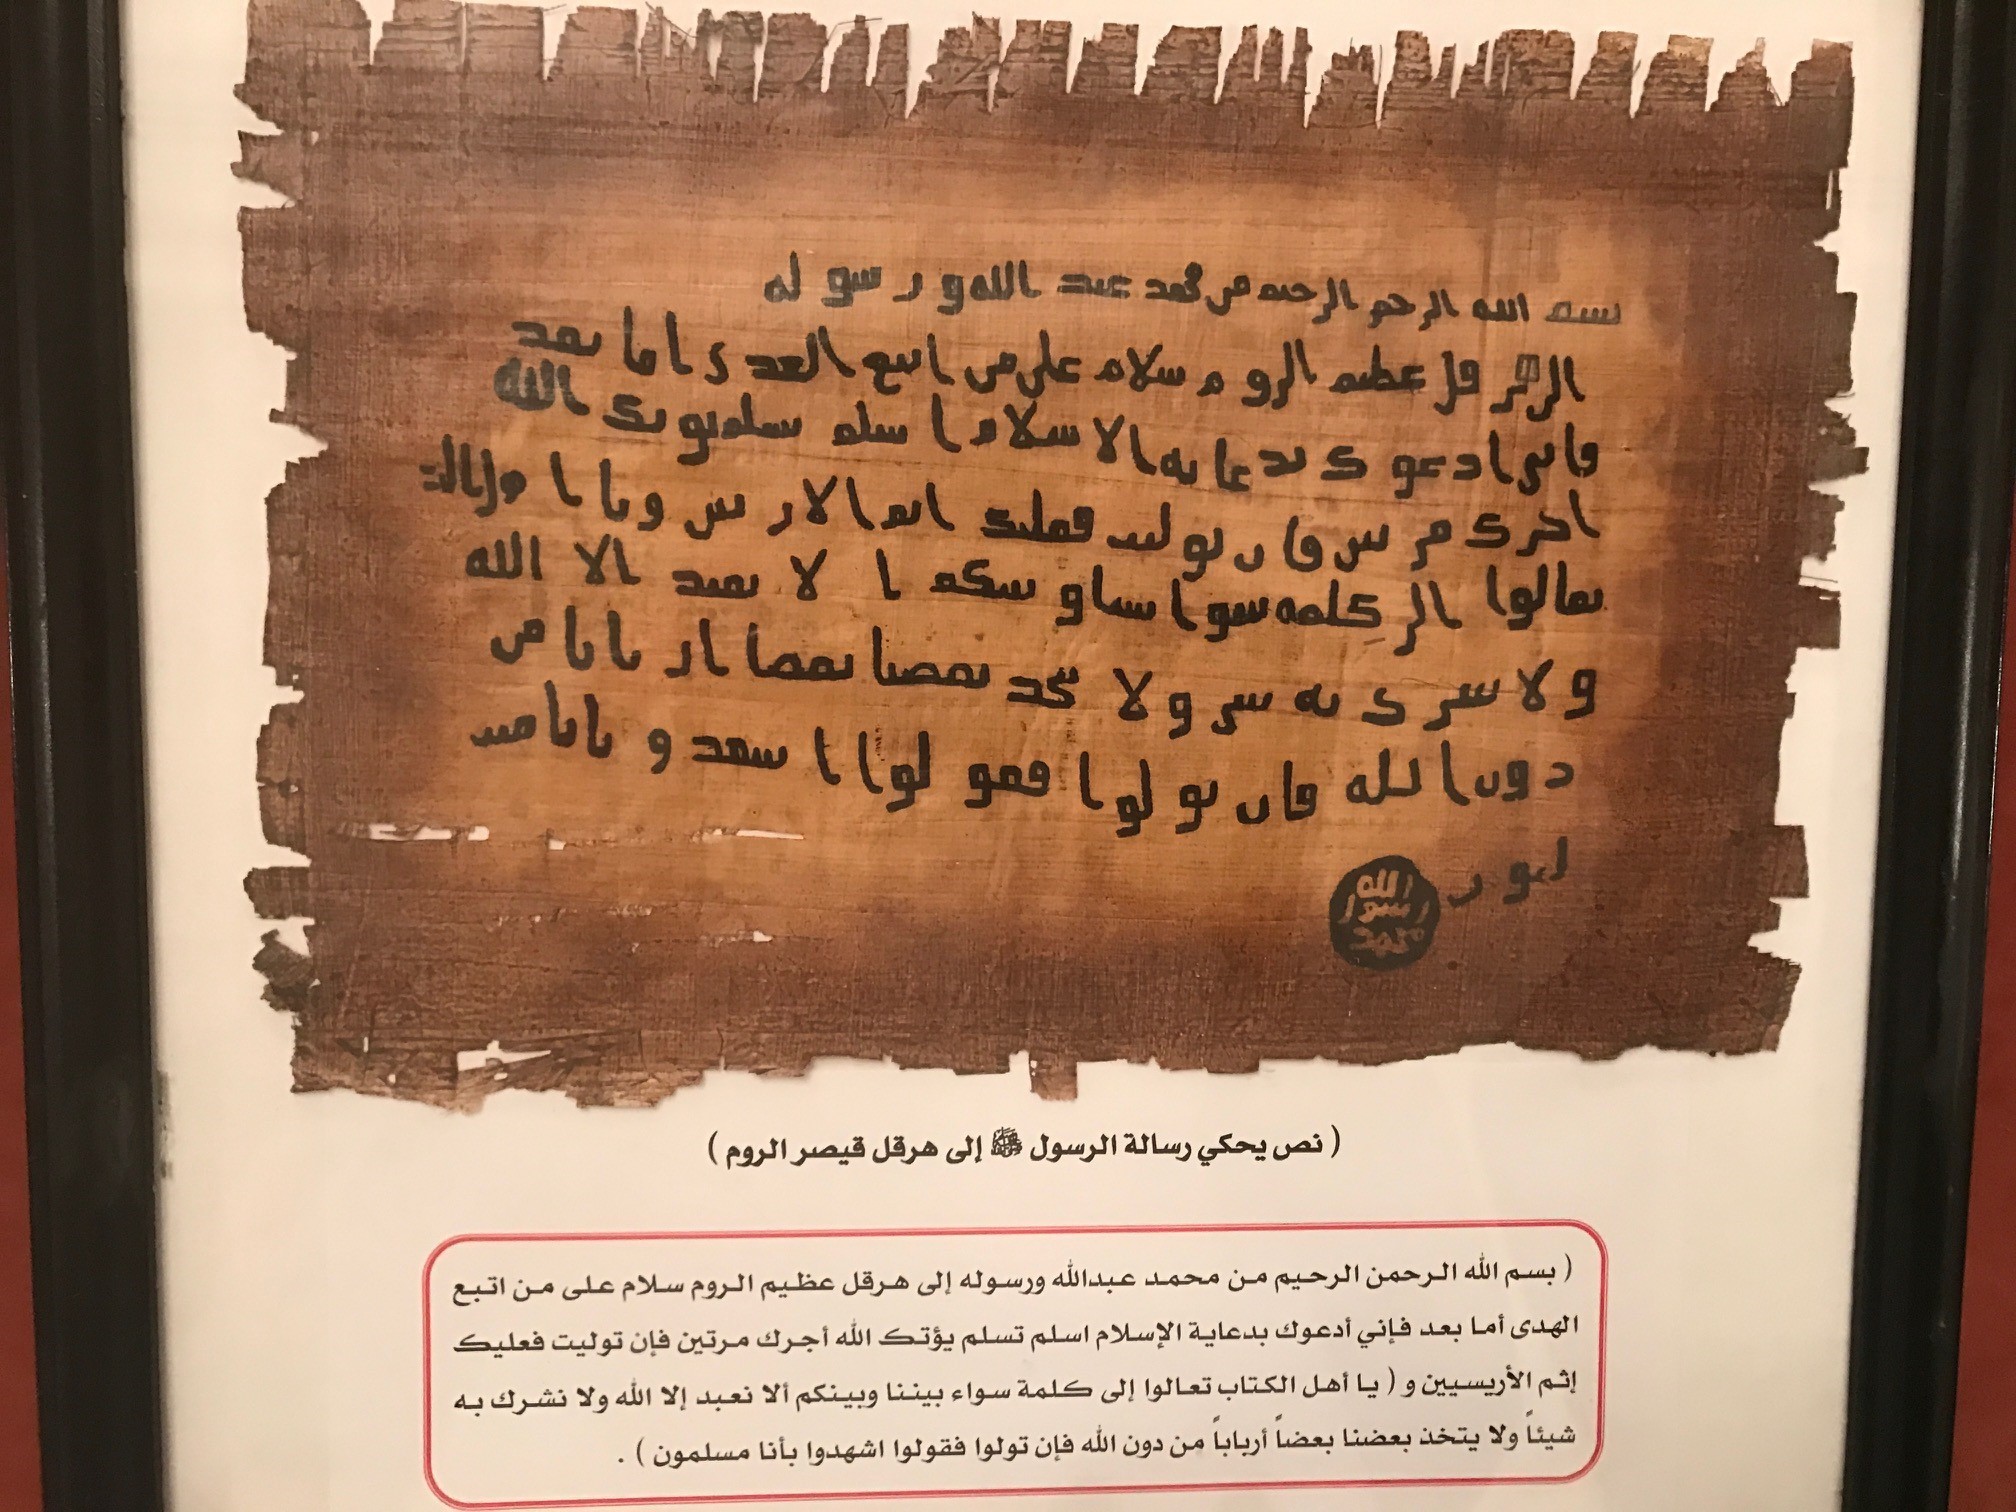 بسم الله الرحمن الرحيم من محمد عبد الله و رسوله
الى هرقل عظيم الروم سلام على من اتبع الهدى اما بعد
فانى ادعوك بدعايه الاسلام اسلم تسلم يوتك الله
اجرك مرتين فان توليت فعليك اثم الاريس و يا ا
تعالوا الى كلمه سوا بيننا و بينكم الا نعبد الا الله
و لا نشرك به شيئا و لا يتخذ بعضنا بعضا اربابا من
دون الله فان تولوا فقولوا اشهدوا بانا مسـ
لمون
الله
رسول
محمد
( نص يحكي رسالة الرسول ﷺ إلى هرقل قيصر الروم )
( بسم الله الرحمن الرحيم من محمد عبدالله ورسوله إلى هرقل عظيم الروم سلام على من اتبع
الهدى أما بعد فإني أدعوك بدعاية الإسلام اسلم تسلم يؤتك الله أجرك مرتين فإن توليت فعليك
إثم الأريسيين و ( يا أهل الكتاب تعالوا إلى كلمة سواء بيننا وبينكم ألا نعبد إلا الله ولا نشرك به
شيئاً ولا يتخذ بعضنا بعضاً أرباباً من دون الله فإن تولوا فقولوا اشهدوا بأنا مسلمون ) .